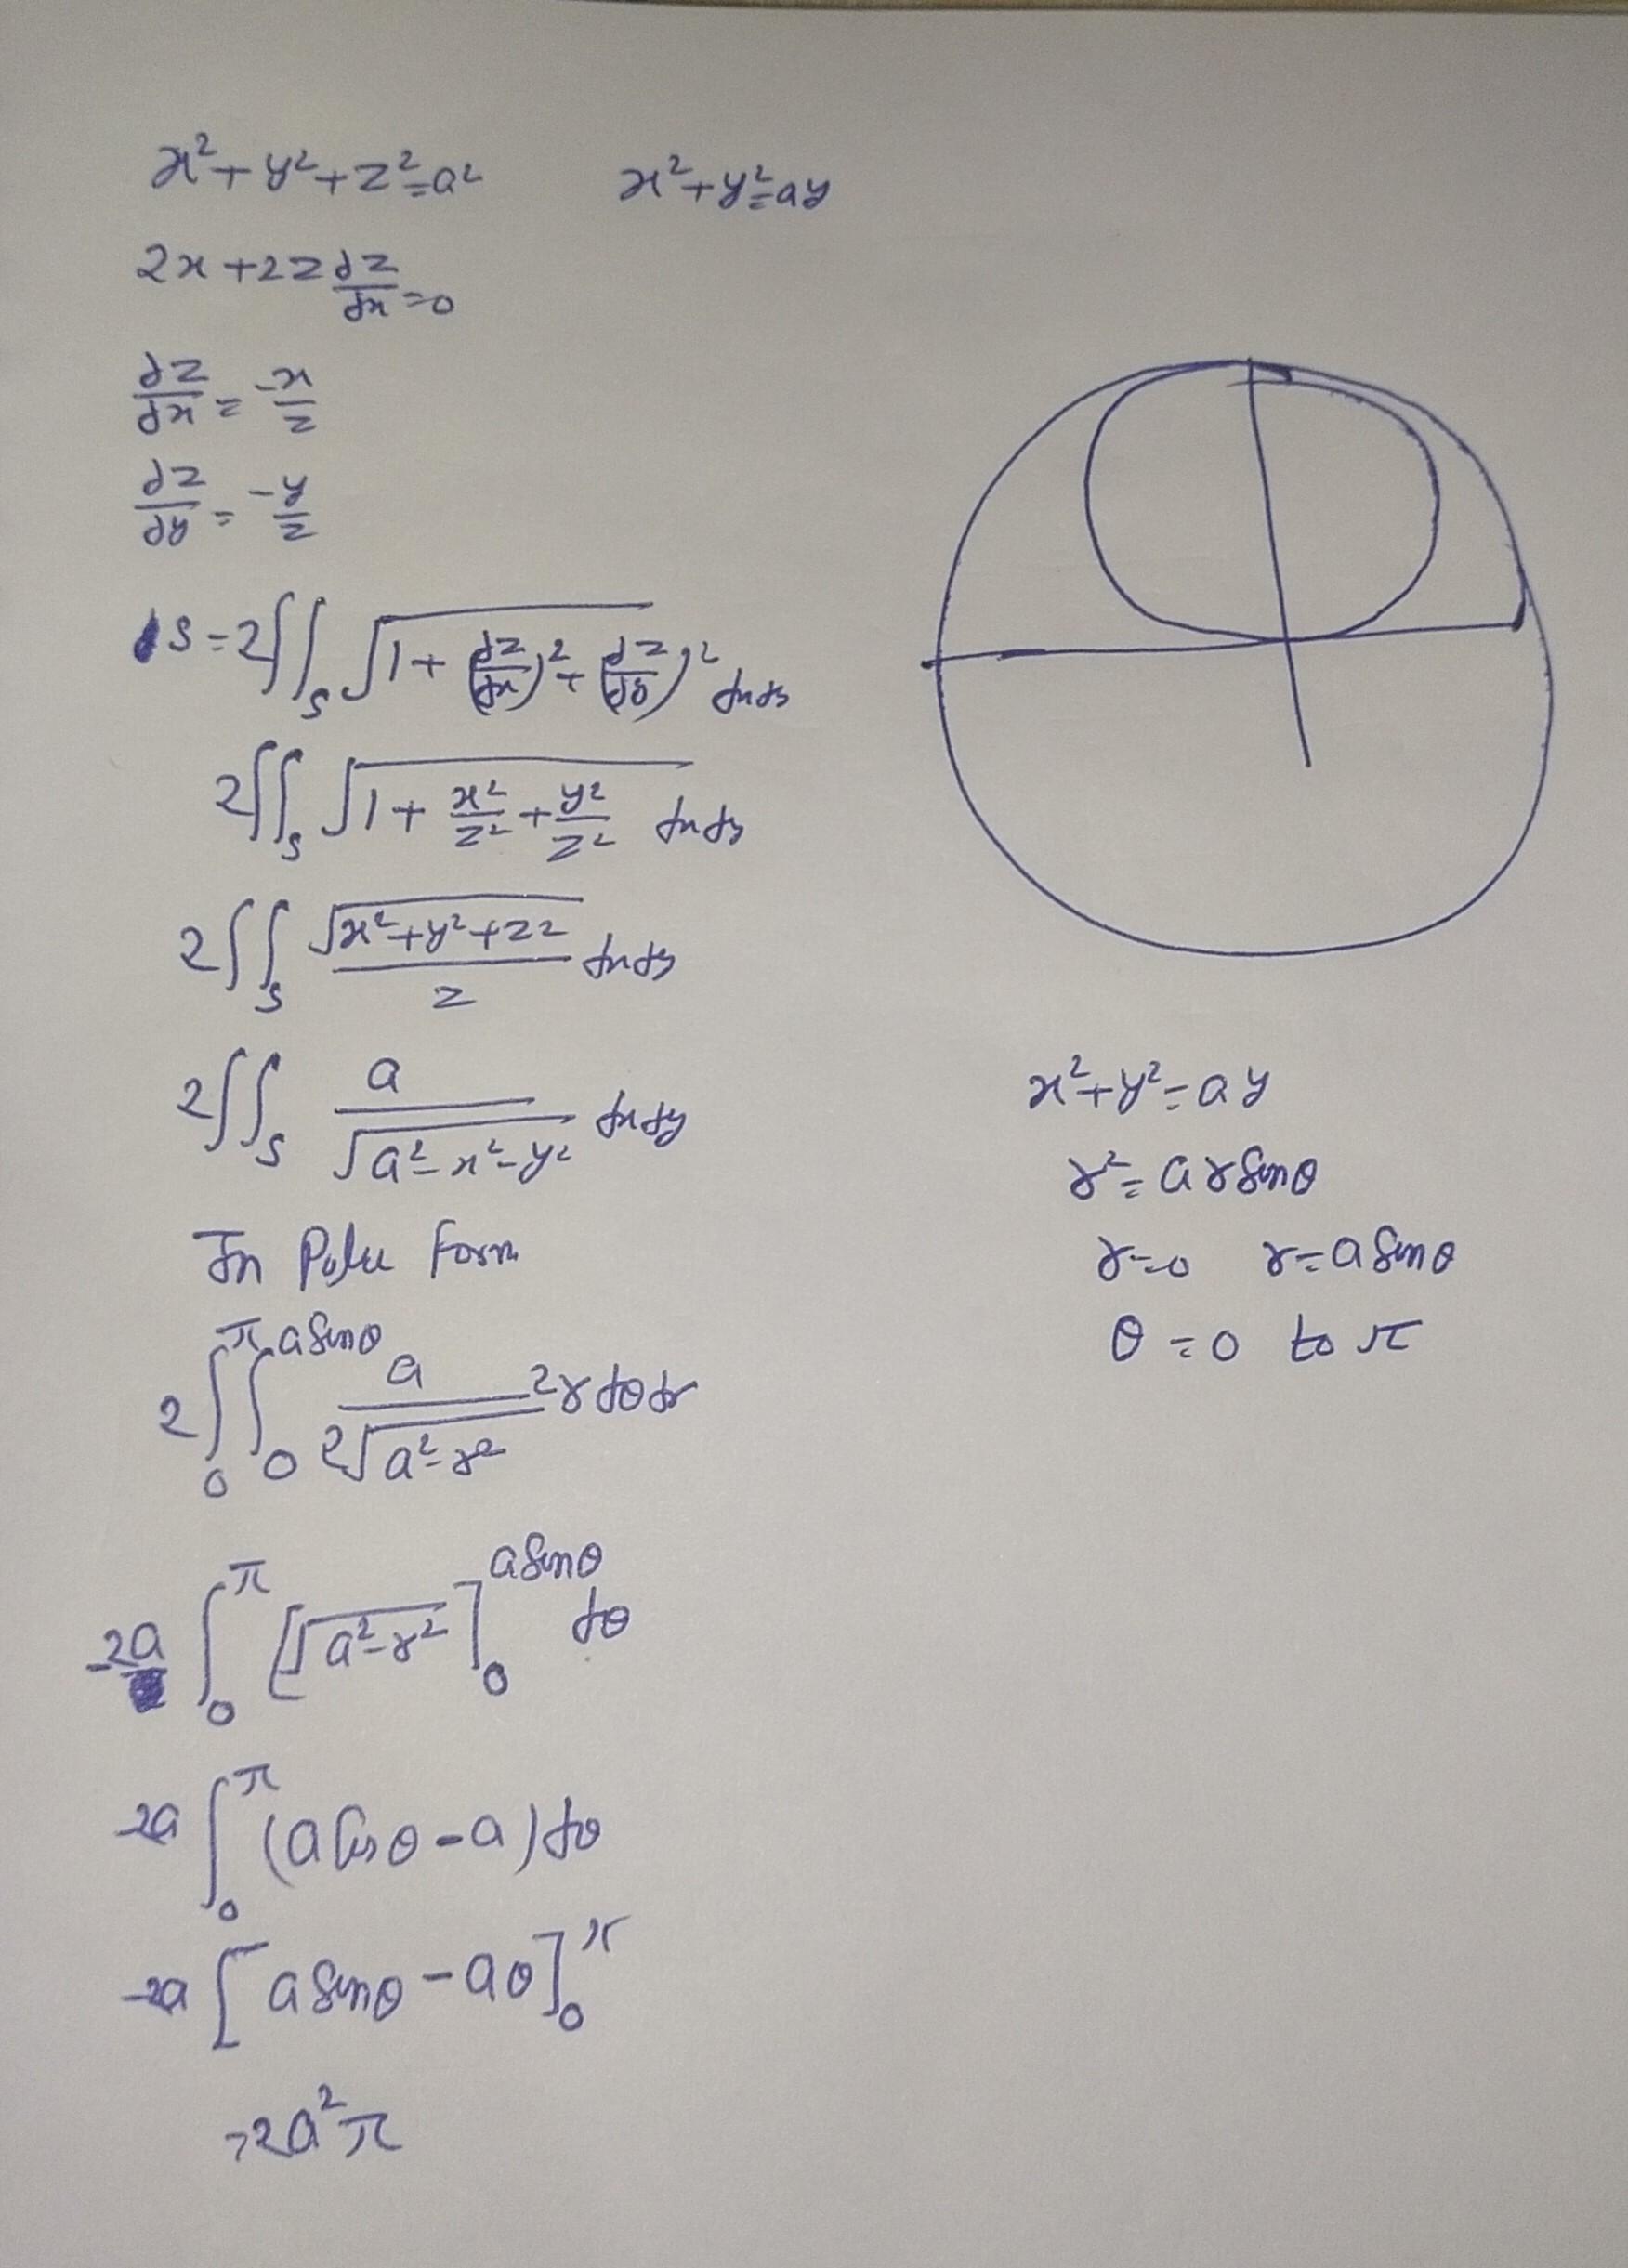 x²+y²+z²=a²    x²+y²=ay
2x+2z dz/dx=0
dz/dx = -x/z
dz/dy = -y/z
S=2∬_S √(1+(dz/dx)²+(dz/dy)²) dxdy
2∬_S √(1+x²/z²+y²/z²) dxdy
2∬_S √(x²+y²+z²)/z dxdy
2∬_S a/√(a²-x²-y²) dxdy
In Polar Form
2∫_0^π ∫_0^{a sinθ} a/(2√(a²-r²)) 2r dθdr
-2a ∫_0^π [√(a²-r²)]_0^{a sinθ} dθ
-2a ∫_0^π (a cosθ-a)dθ
-2a [a sinθ-aθ]_0^π
=2a²π
x²+y²=ay
r²=ar sinθ
r=0    r=a sinθ
θ=0 to π